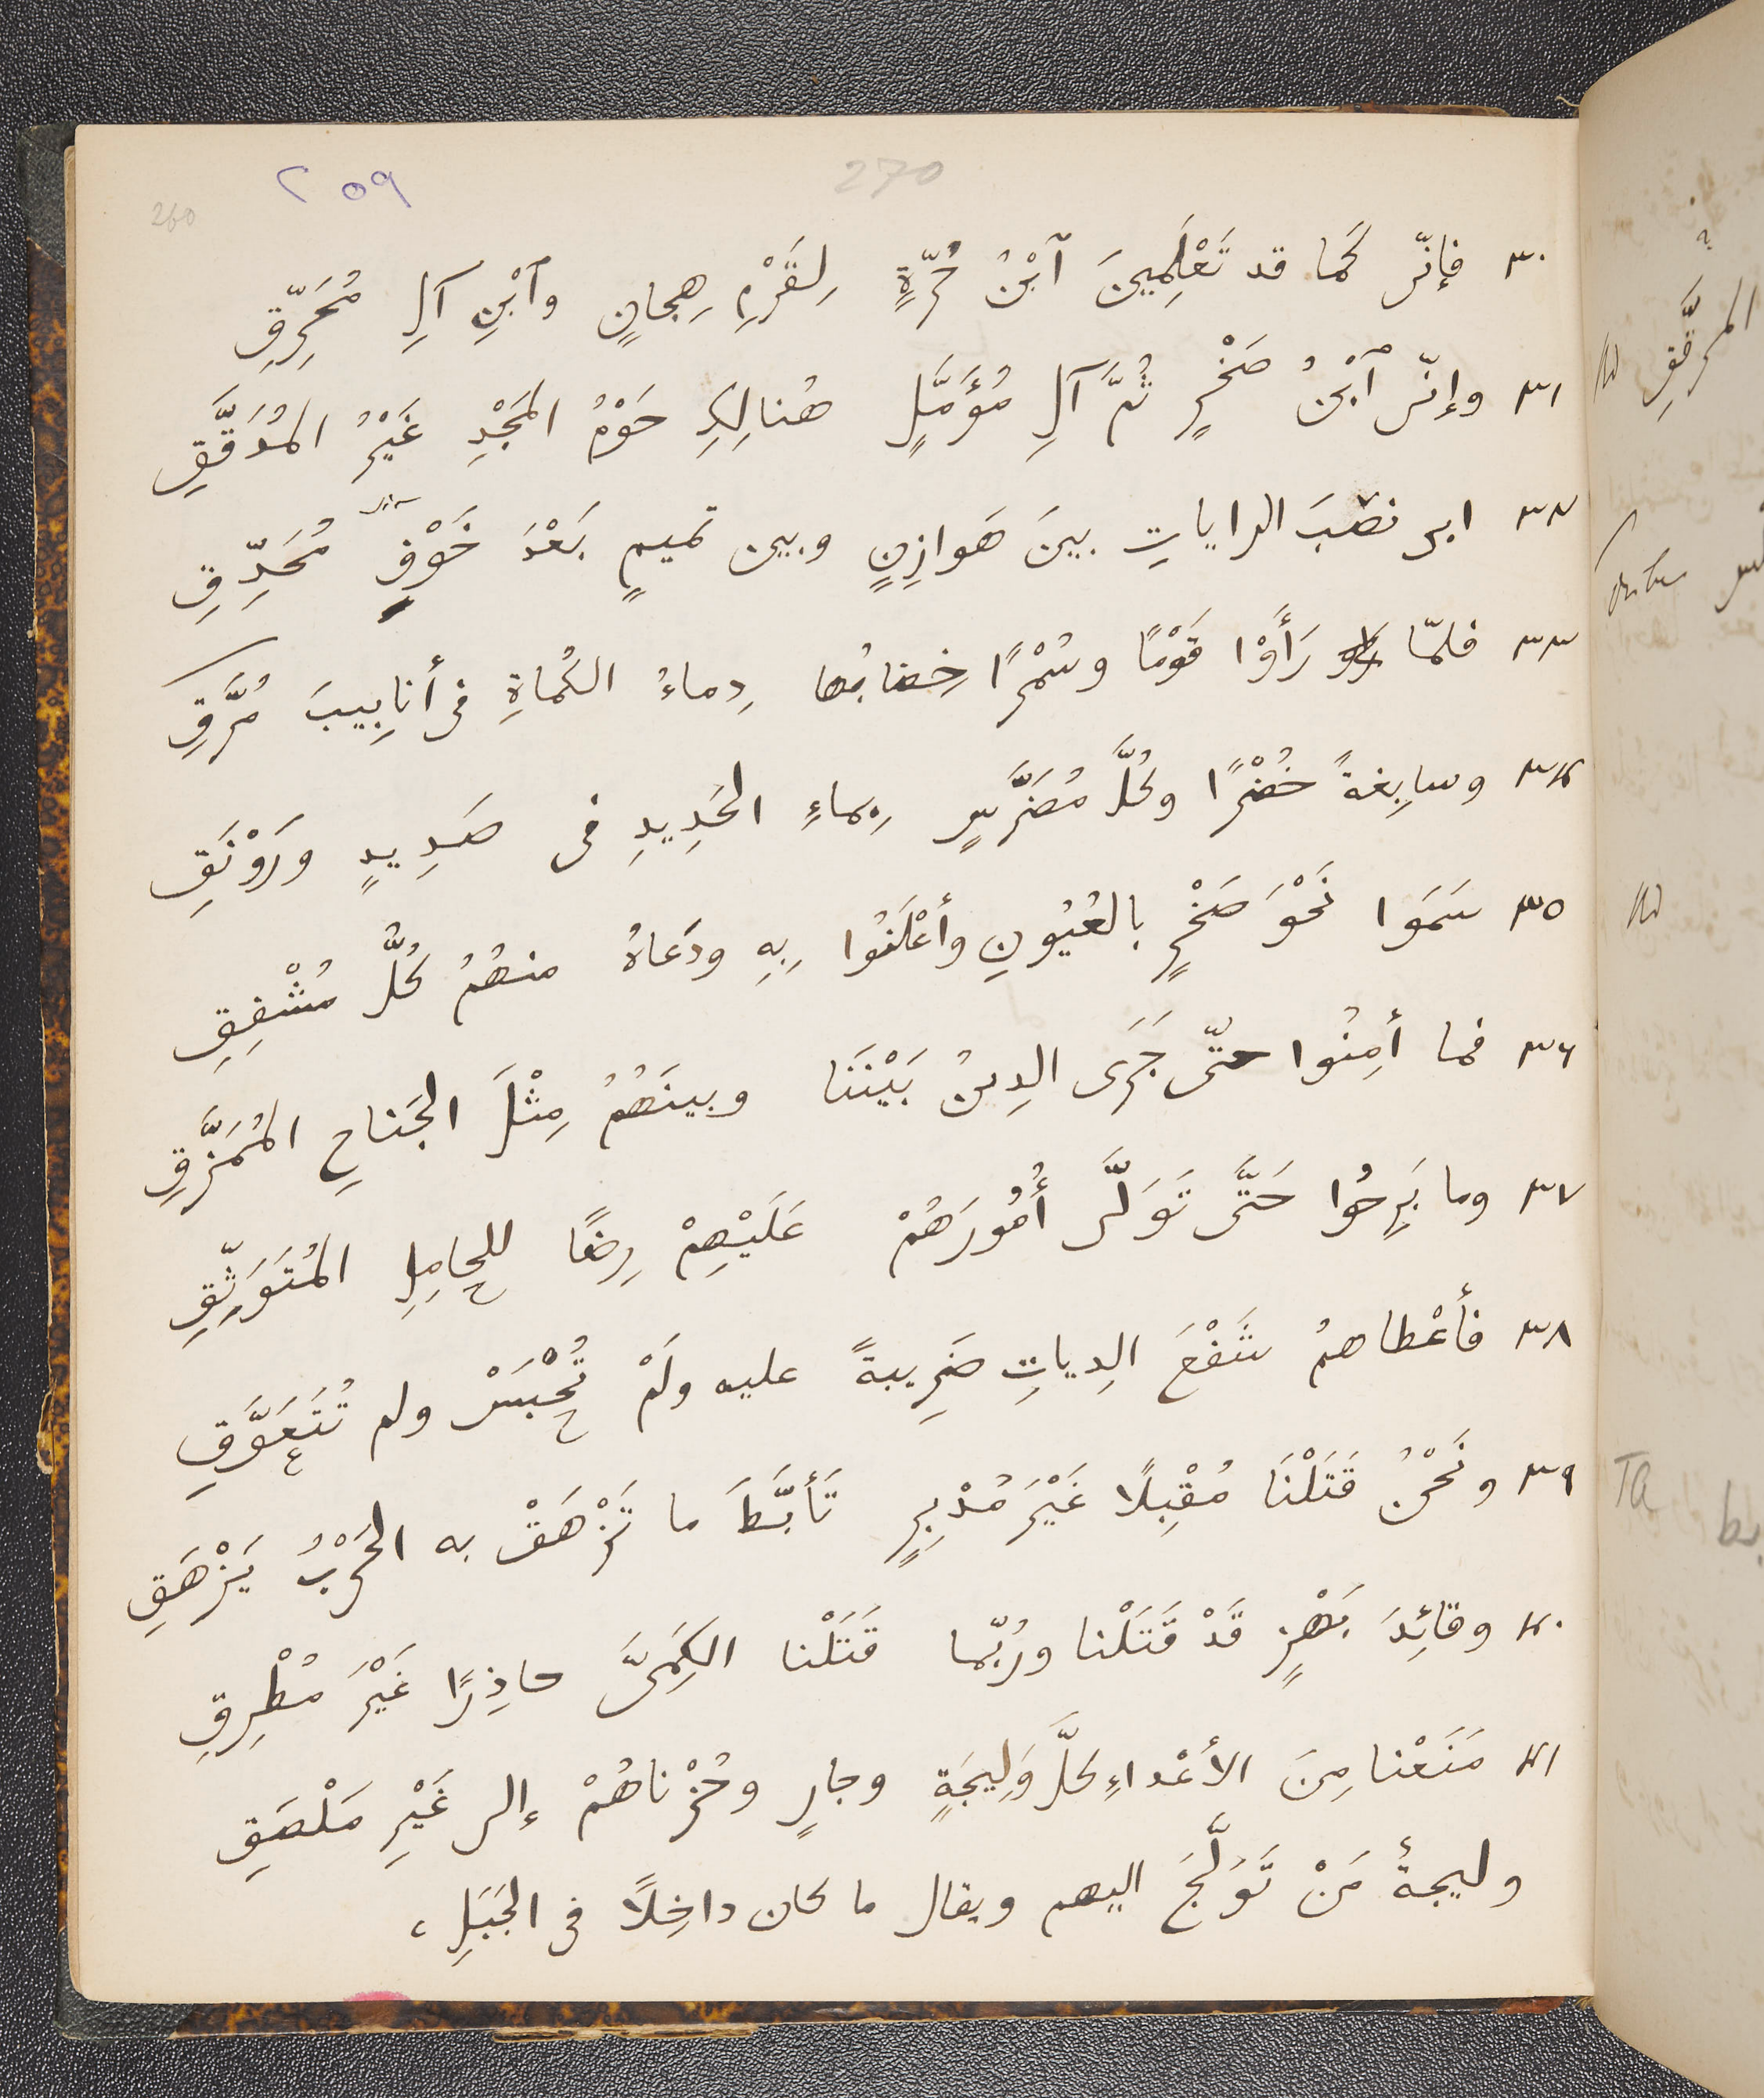 270
٢٥٩
260
٣٠ فإنّى كَما قد تَعْلَمِينَ ٱبْنُ حُرّةٍ لِقَرْمِ هِجانٍ وٱبْنِ آلِ مُحَرِّقِ
٣١ وإنّى ٱبْنُ صَخْرٍ ثُمَّ آلِ مُؤَمَّلٍ هُنالِكِ حَوْمُ المَجْدِ غَيْرُ المُدَقَّقِ
٣٢ ابى نصَبَ الراياتِ بينَ هَوازِنٍ وبين تميمٍ بَعْدَ خَوْفٍ مُحَدِّقِ
٣٣ فلمّا رَأَوْا قَوْمًا وسُمْرًا خِضابُها دِماءُ الكُماةِ فى أنابِيبَ مُرَّقِ
٣٤ وسابِغةً خُضْرًا وكُلَّ مُضَرَّسٍ بِماءِ الحَدِيدِ فى صَدِيدٍ ورَوْنَقِ
٣٥ سَمَوا نَحْوَ صَخْرٍ بالعُيُونِ وأعْلَنُوا بِهِ ودَعاهُ منهُمُ كُلُّ مُشْفِقِ
٣٦ فما أمِنُوا حتّى جَرَى الدِينُ بَيْنَنَا وبينَهُمُ مِثْلَ الجَناحِ المُمَزَّقِ
٣٧ وما بَرِحُوا حَتَّى تَوَلَّى أُمُورَهُمْ عَلَيْهِمْ رِضًا للحامِلِ المُتَوَثِّقِ
٣٨ فأعْطاهمُ شَفْعَ الدِياتِ ضَرِيبةً عليه ولَمْ تُحْبَسْ ولم تُتَعَوَّقِ
٣٩ ونَحْنُ قَتَلْنَا مُقْبِلًا غَيْرَ مُدْبِرٍ تَأبَّطَ ما تَزْهَقْ به الحَرْبُ يَزْهَقِ
٤٠ وقائِدَ بَهْزٍ قَدْ قَتَلْنا ورُبّما قَتَلْنا الكِمَىَّ حاذِرًا غَيْرَ مُطْرِقِ
٤١ مَنَعْنا مِنَ الأعْداءِ كلَّ وَلِيجَةٍ وجارٍ وحُزْناهُمْ إلى غَيْرِ مَلْصَقِ
وليجةُ مَنْ تَوَلَّجَ اليهم ويقال ما كان داخِلًا فى الجَبَلِ،